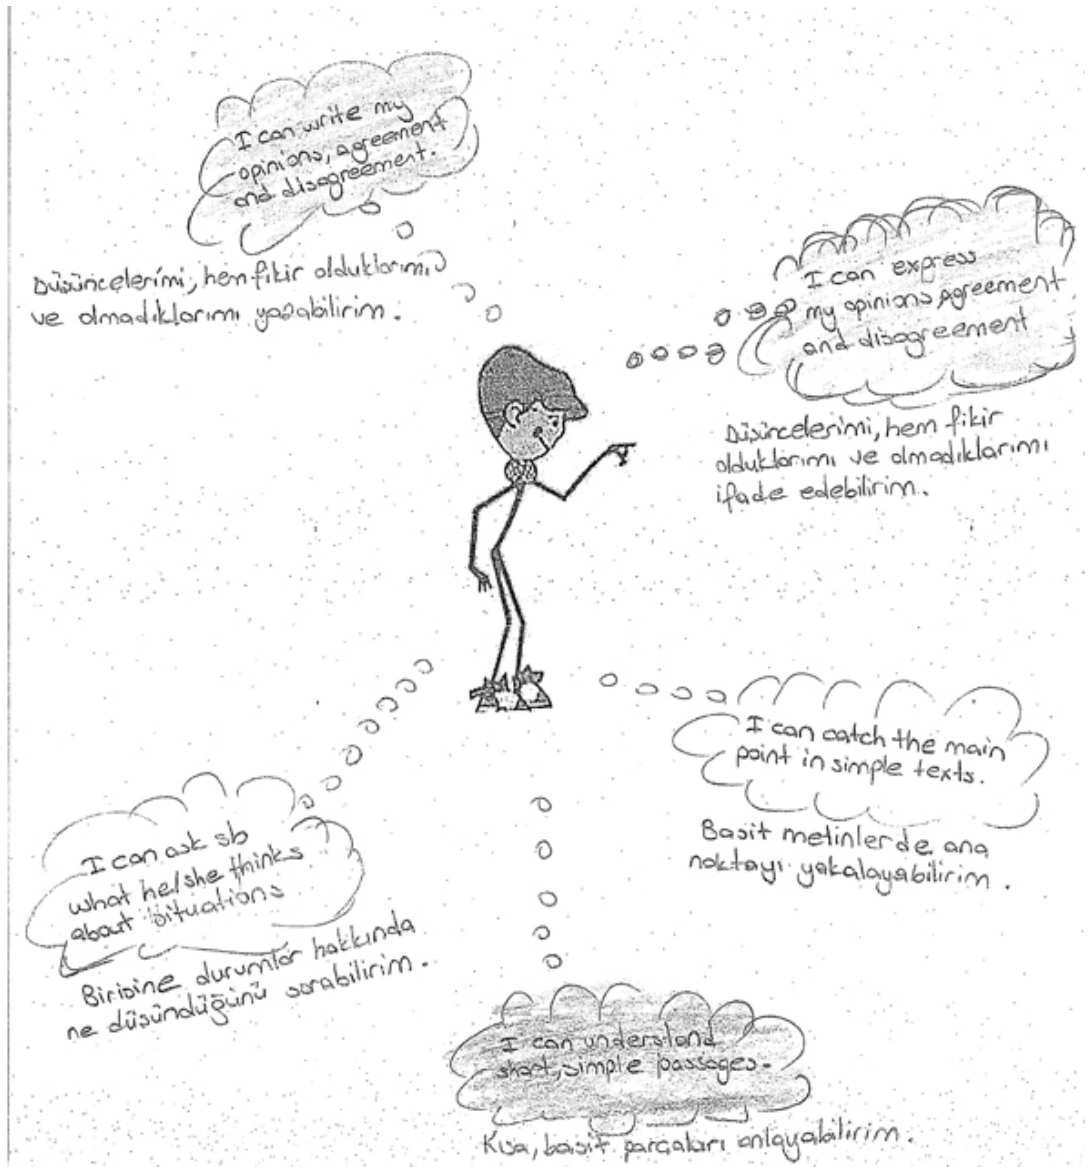 I can write my
opinions, agreement
and disagreement.
Düşüncelerimi, hem fikir olduklarımı
ve olmadıklarımı yazabilirim.
I can express
my opinions agreement
and disagreement
Düşüncelerimi, hem fikir
olduklarımı ve olmadıklarımı
ifade edebilirim.
I can catch the main
point in simple texts.
Basit metinlerde ana
noktayı yakalayabilirim.
I can ask sb
what he/she thinks
about situations
Birisine durumlar hakkında
ne düşündüğünü sorabilirim.
I can understand
short, simple passages.
Kısa, basit parçaları anlayabilirim.